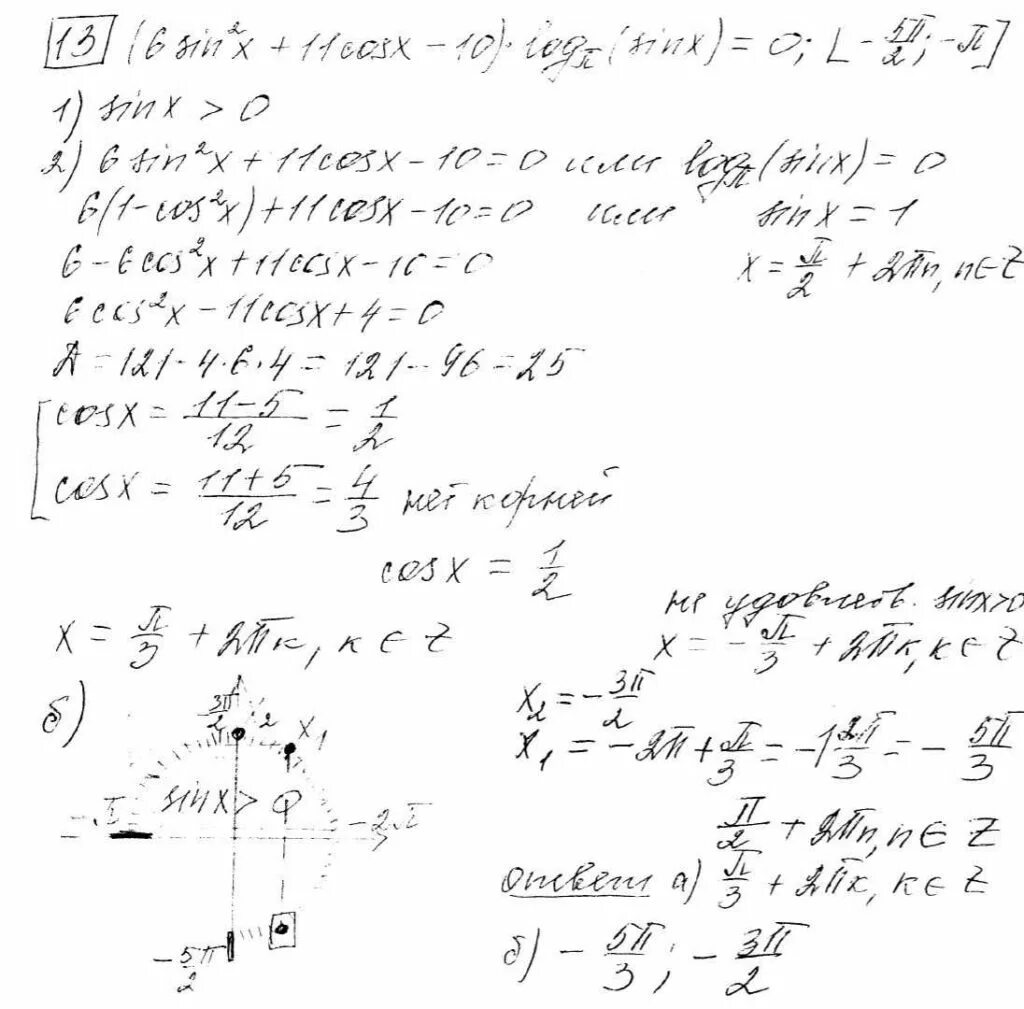 13 (6 sin²x + 11cosx - 10)·logπ(sinx) = 0; [-5π/2; -π]
1) sinx > 0
2) 6 sin²x + 11cosx - 10 = 0 или logπ(sinx) = 0
6(1-cos²x) + 11cosx - 10 = 0 или sinx = 1
6 - 6cos²x + 11cosx - 10 = 0 x = π/2 + 2πn, n∈Z
6cos²x - 11cosx + 4 = 0
D = 121 - 4·6·4 = 121 - 96 = 25
cosx = (11-5)/12 = 1/2
cosx = (11+5)/12 = 4/3 нет корней
cosx = 1/2
не удовлетв. sinx>0
x = π/3 + 2πk, k∈Z x = -π/3 + 2πk, k∈Z
б)
-3π/2 x₂ x₁
sinx > 0
-π -2π
-5π/2
x₂ = -3π/2
x₁ = -2π + π/3 = -1 2π/3 = -5π/3
π/2 + 2πn, n∈Z
ответ а) π/3 + 2πk, k∈Z
б) -5π/3; -3π/2